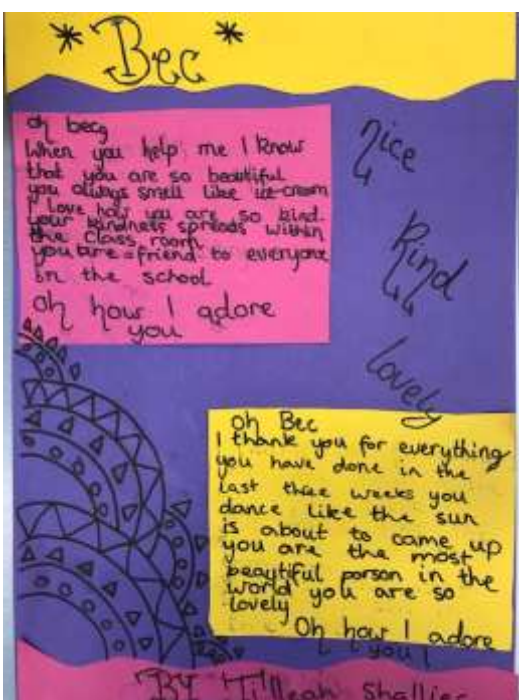 * Bec *
oh bec,
When you help me I know
that you are so beatiful
you always smell like ice-cream
I Love how you are so kind.
your kindness spreads within
the Class room
you are a friend to everyone
in the school
oh how I adore
you
nice
kind
lovely
oh Bec
I thank you for everything
you have done in the
last three weeks you
dance like the sun
is about to came up
you are the most
beaytiful porson in the
world you are so
lovely
Oh how I adore
you!
By Tilleah